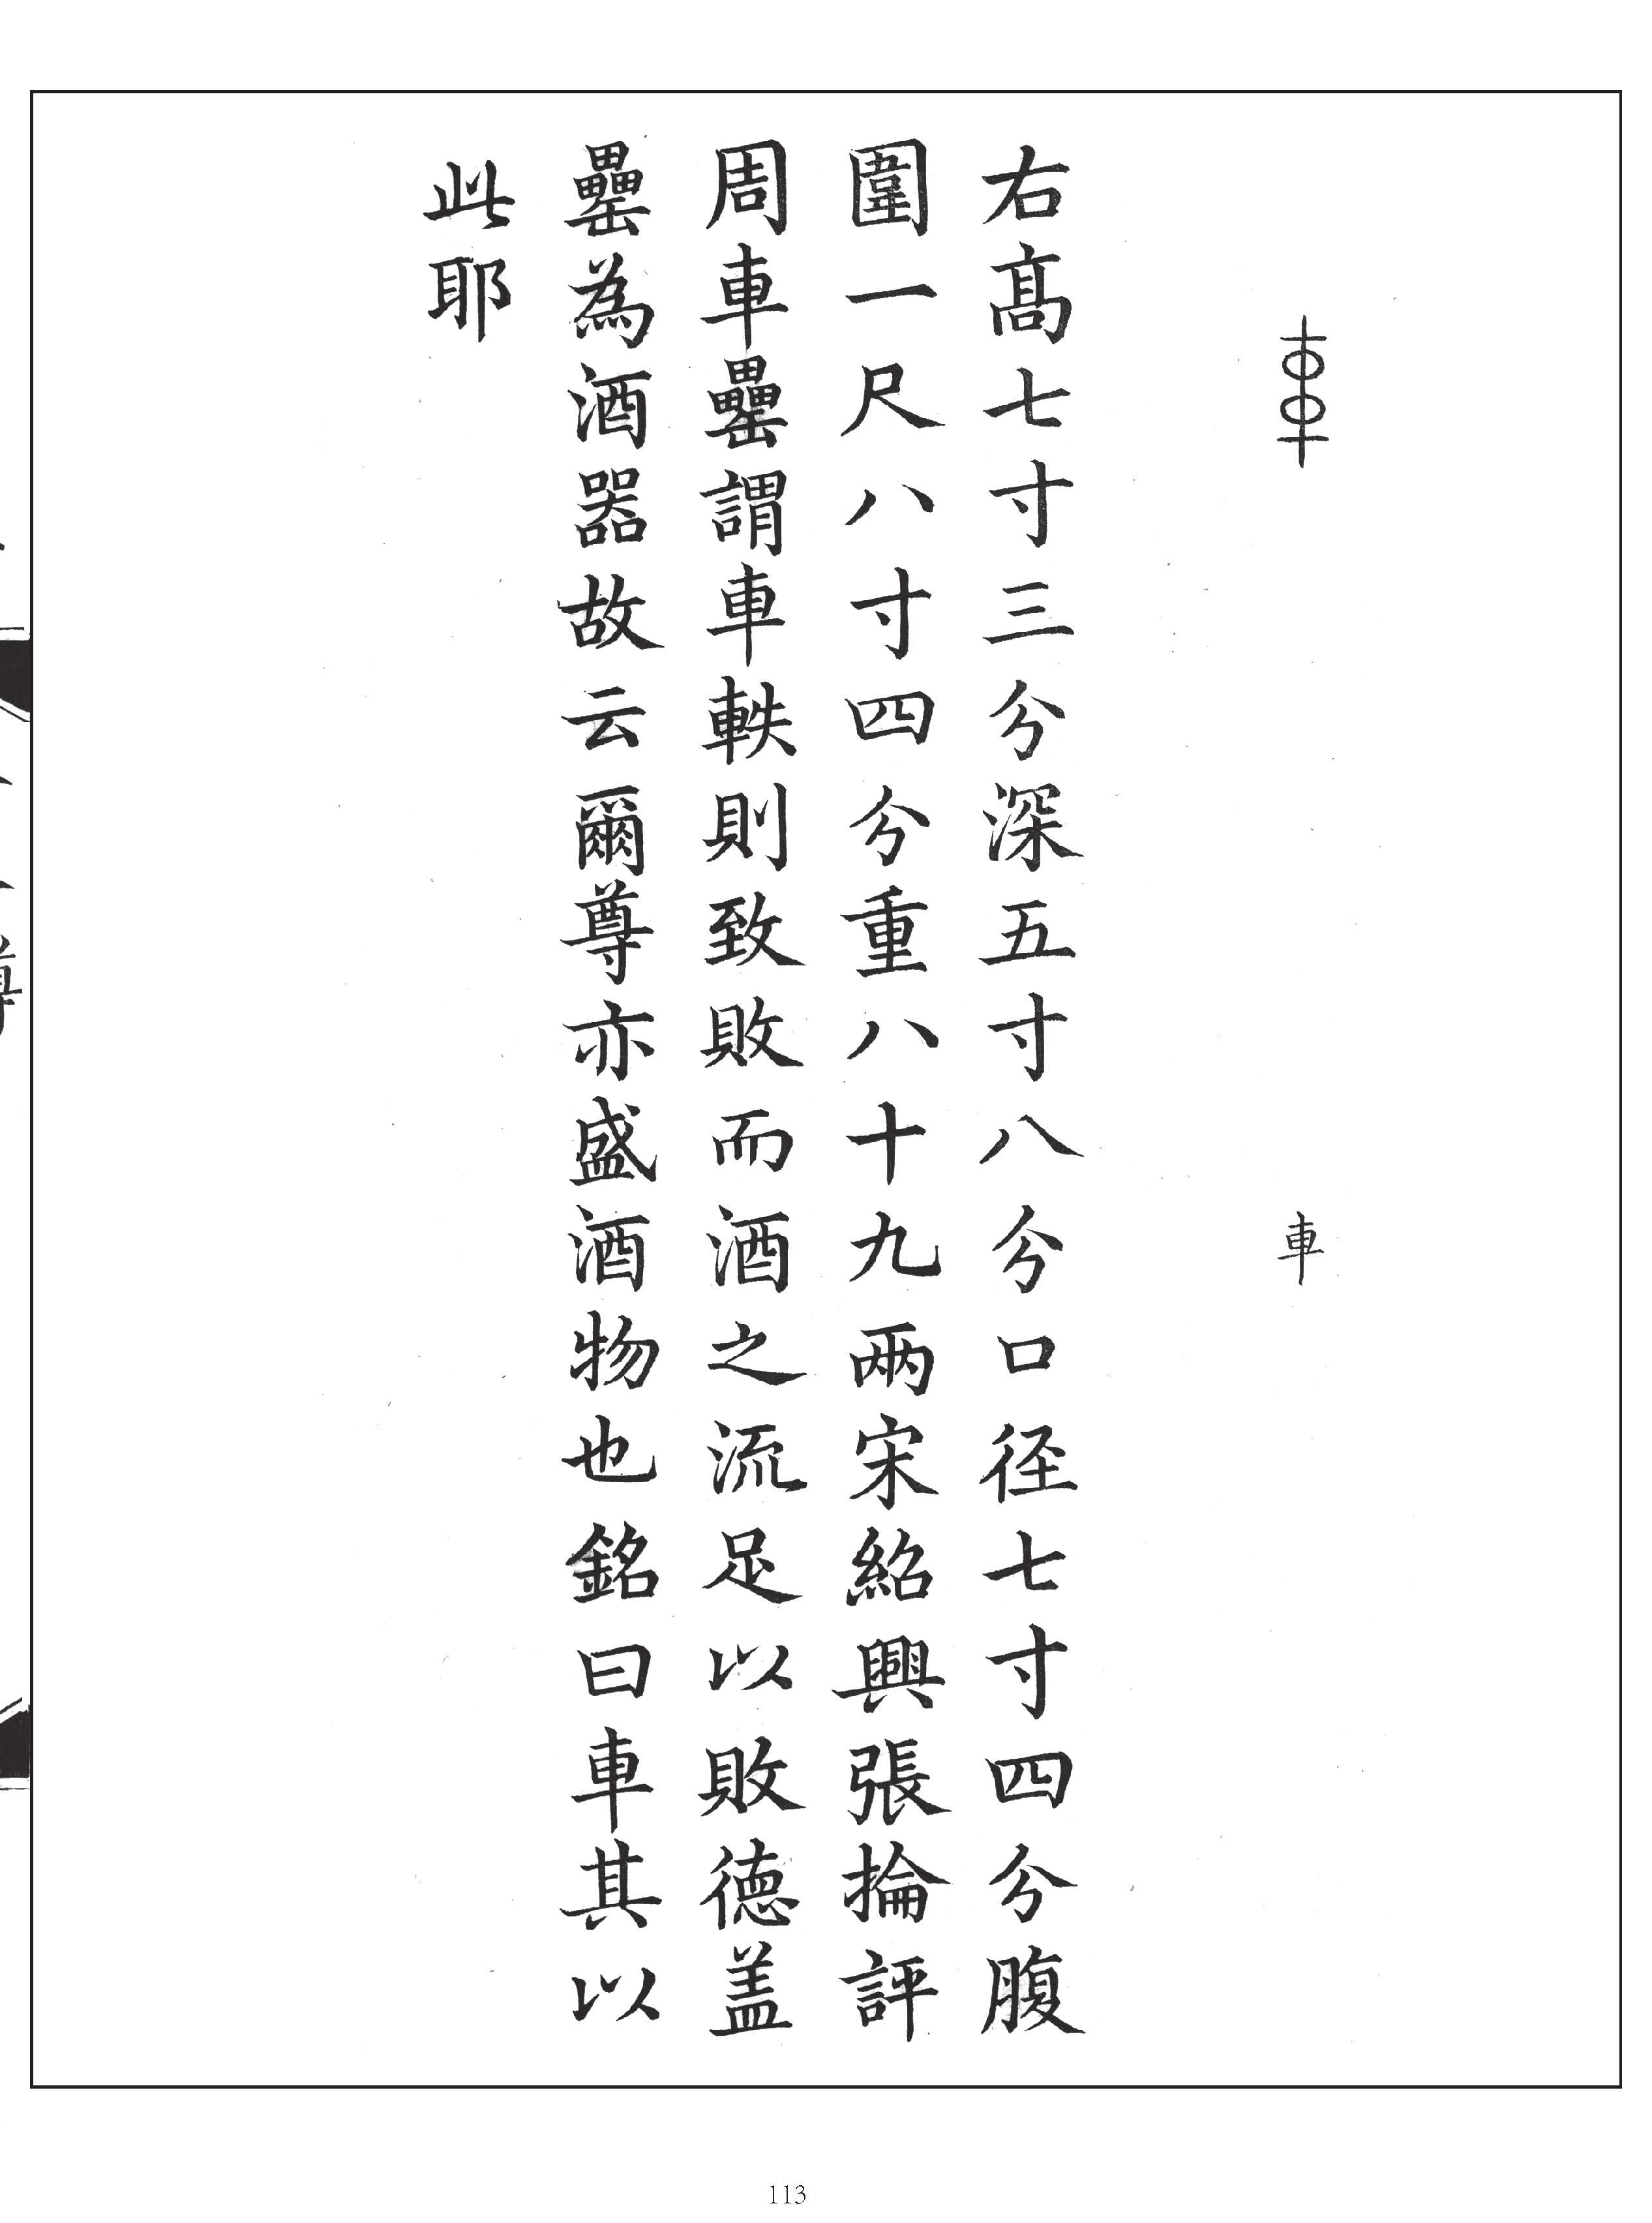 車
右髙七寸三分深五寸八分口径七寸四分腹
圍一尺八寸四分重八十九兩宋紹興張掄評
周車罍謂車軼則致敗而酒之流足以敗德盖
罍為酒器故云爾尊亦盛酒物也銘曰車其以
此耶
113